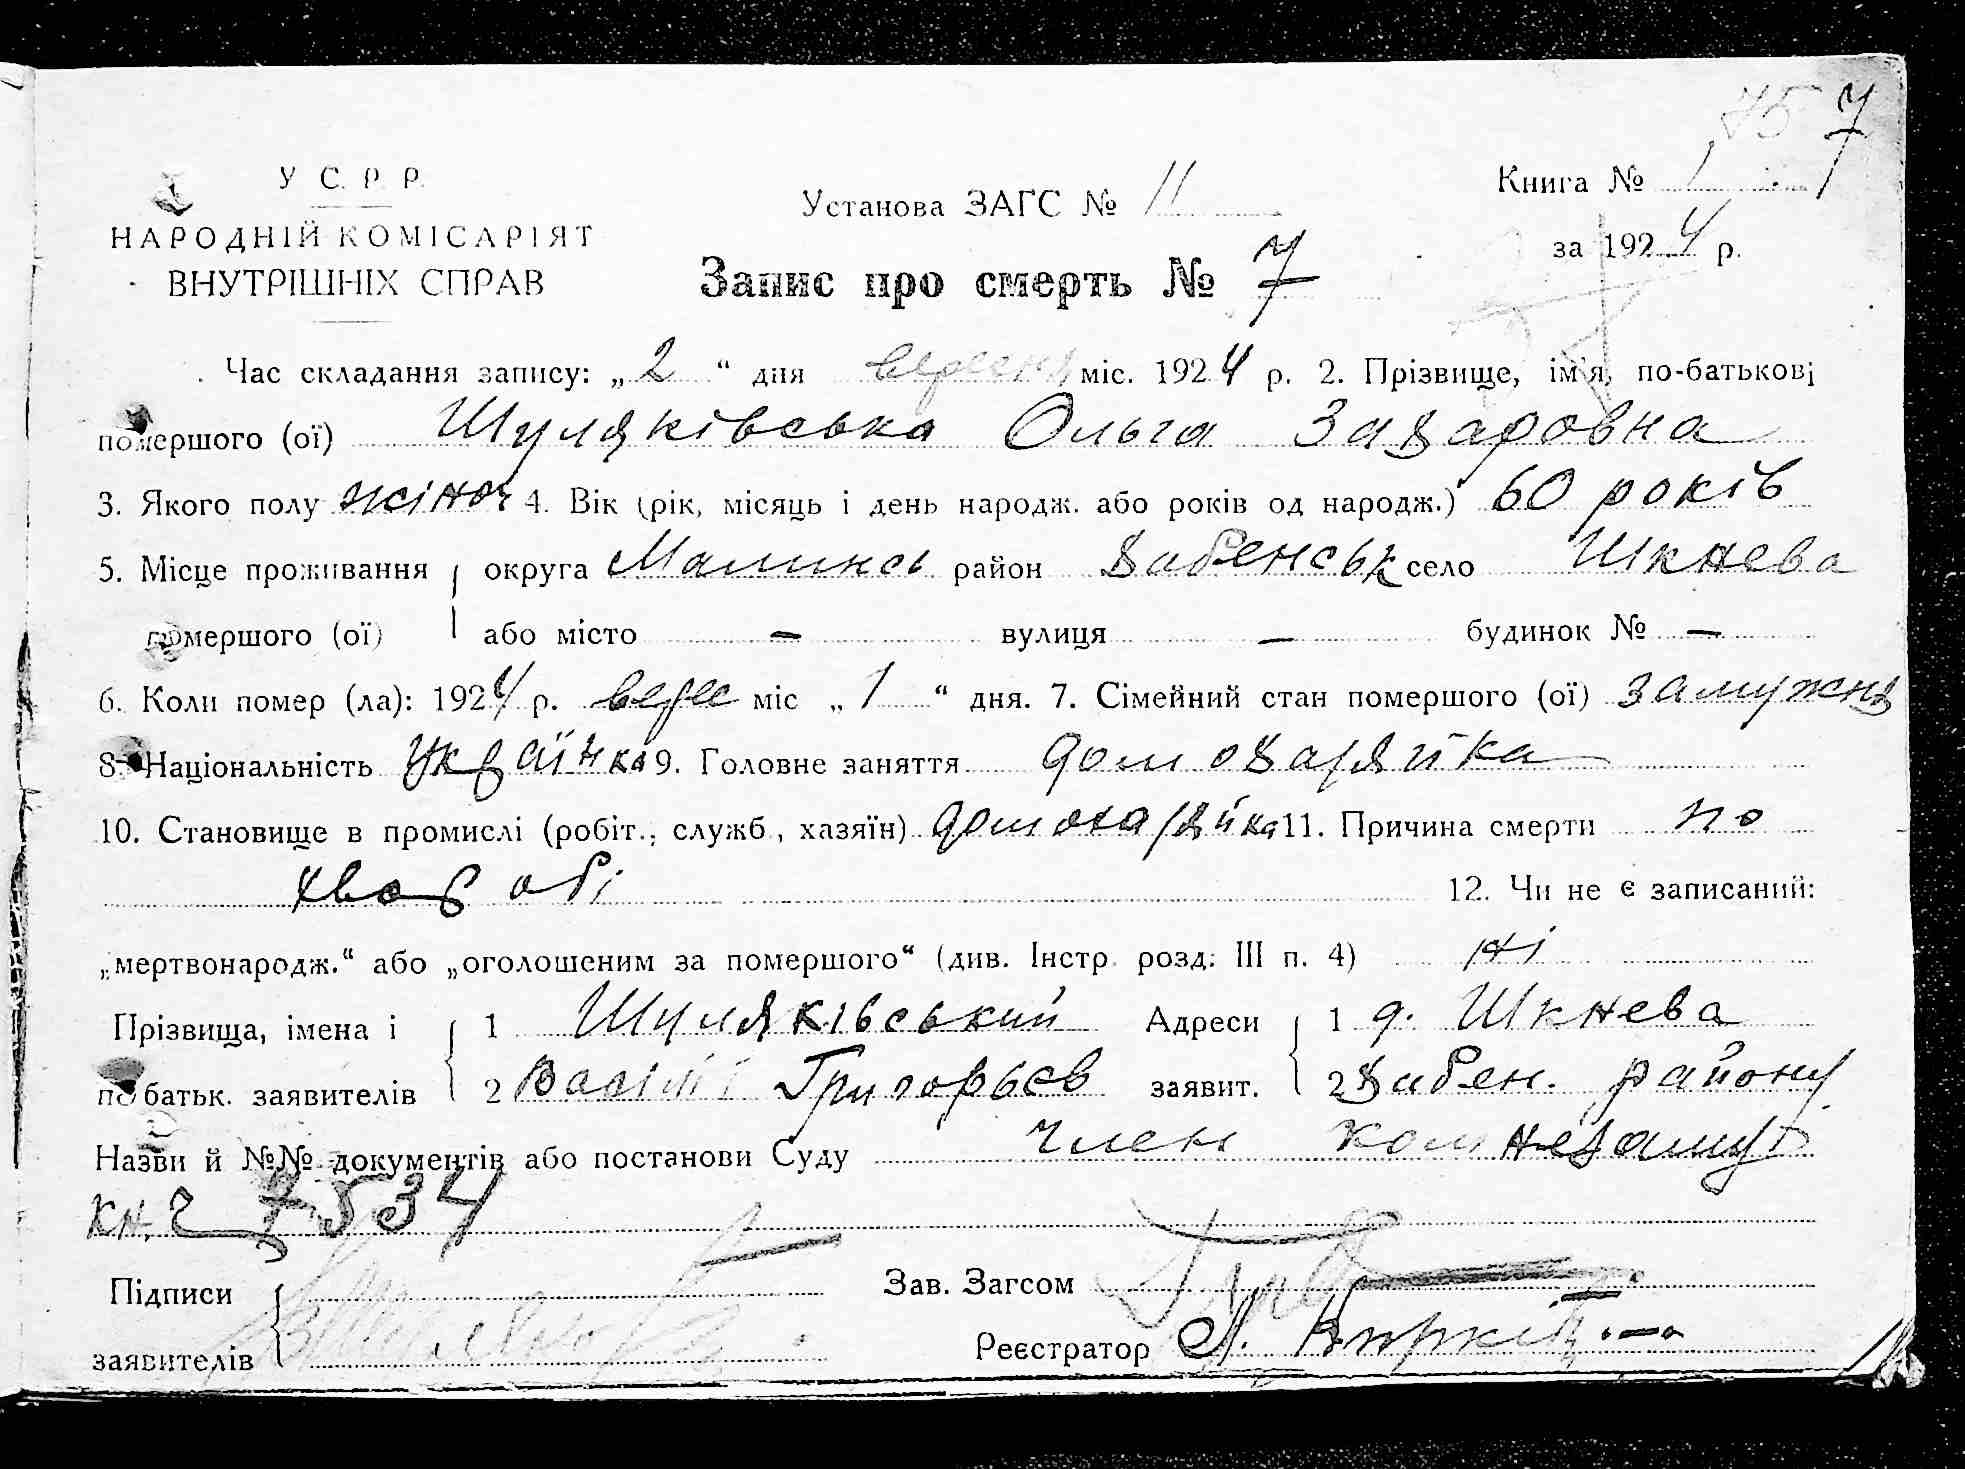 75 7
У С. Р. Р.
НАРОДНІЙ КОМІСАРІЯТ
ВНУТРІШНІХ СПРАВ
Установа ЗАГС № 11
Книга № 1
за 1924 р.
Запис про смерть № 7
Час складання запису: „2“ дня вересня міс. 1924 р. 2. Прізвище, ім'я, по-батькові
помершого (ої) Шуляківська Ольга Захаровна
3. Якого полу жіноч 4. Вік (рік, місяць і день народж. або років од народж.) 60 років
5. Місце проживання округа Малинсь район Хабенськ село Шкнева
помершого (ої) або місто — вулиця — будинок № —
6. Коли помер (ла): 1924 р. вере міс „1“ дня. 7. Сімейний стан помершого (ої) замужня
8. Національність Українка 9. Головне заняття домохазяйка
10. Становище в промислі (робіт., служб., хазяїн) домохазяйка 11. Причина смерти по
хворобі 12. Чи не є записаний:
„мертвонародж.“ або „оголошеним за помершого“ (див. Інстр. розд. III п. 4) ні
Прізвища, імена і 1 Шуляківський Адреси 1 д. Шкнева
по батьк. заявителів 2 Григорьєв заявит. 2 Хабен. району
Назви й №№ документів або постанови Суду член комнезаму
кн. 7534
Підписи Зав. Загсом
заявителів Реєстратор